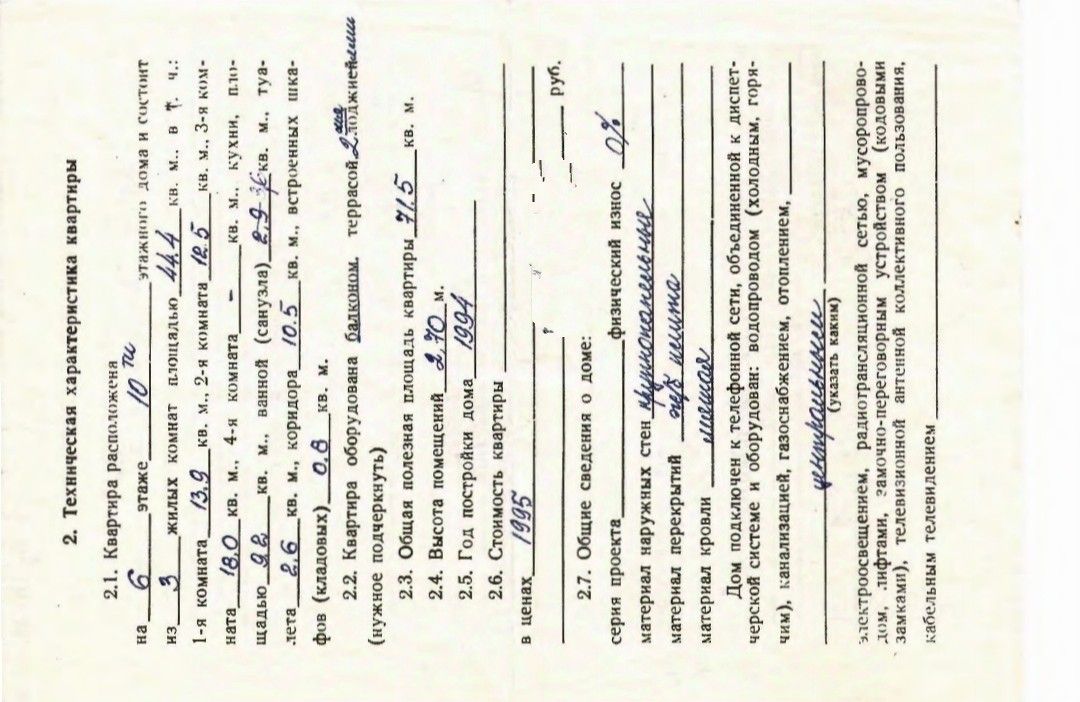 2. Техническая характеристика квартиры
2.1. Квартира расположена
на 6 этаже 10 ти этажного дома и состоит
из 3 жилых комнат площадью 44,4 кв. м., в т. ч.:
1-я комната 13,9 кв. м., 2-я комната 12.5 кв. м., 3-я ком-
ната 18.0 кв. м., 4-я комната – кв. м., кухни, пло-
щадью 9.2 кв. м., ванной (санузла) 2,9 кв. м., туа-
лета 2,6 кв. м., коридора 10.5 кв. м., встроенных шка-
фов (кладовых) 0,8 кв. м.
2.2. Квартира оборудована балконом, террасой 2 лоджией
(нужное подчеркнуть)
2.3. Общая полезная площадь квартиры 71.5 кв. м.
2.4. Высота помещений 2,70 м.
2.5. Год постройки дома 1994
2.6. Стоимость квартиры
в ценах 1995
руб.
2.7. Общие сведения о доме:
серия проекта физический износ 0%
материал наружных стен крупнопанельные
материал перекрытий жб плита
материал кровли мягкая
Дом подключен к телефонной сети, объединенной к диспет-
черской системе и оборудован: водопроводом (холодным, горя-
чим), канализацией, газоснабжением, отоплением,
центральным
(указать каким)
электроосвещением, радиотрансляционной сетью, мусоропрово-
дом, лифтами, замочно-переговорным устройством (кодовыми
замками), телевизионной антенной коллективного пользования,
кабельным телевидением